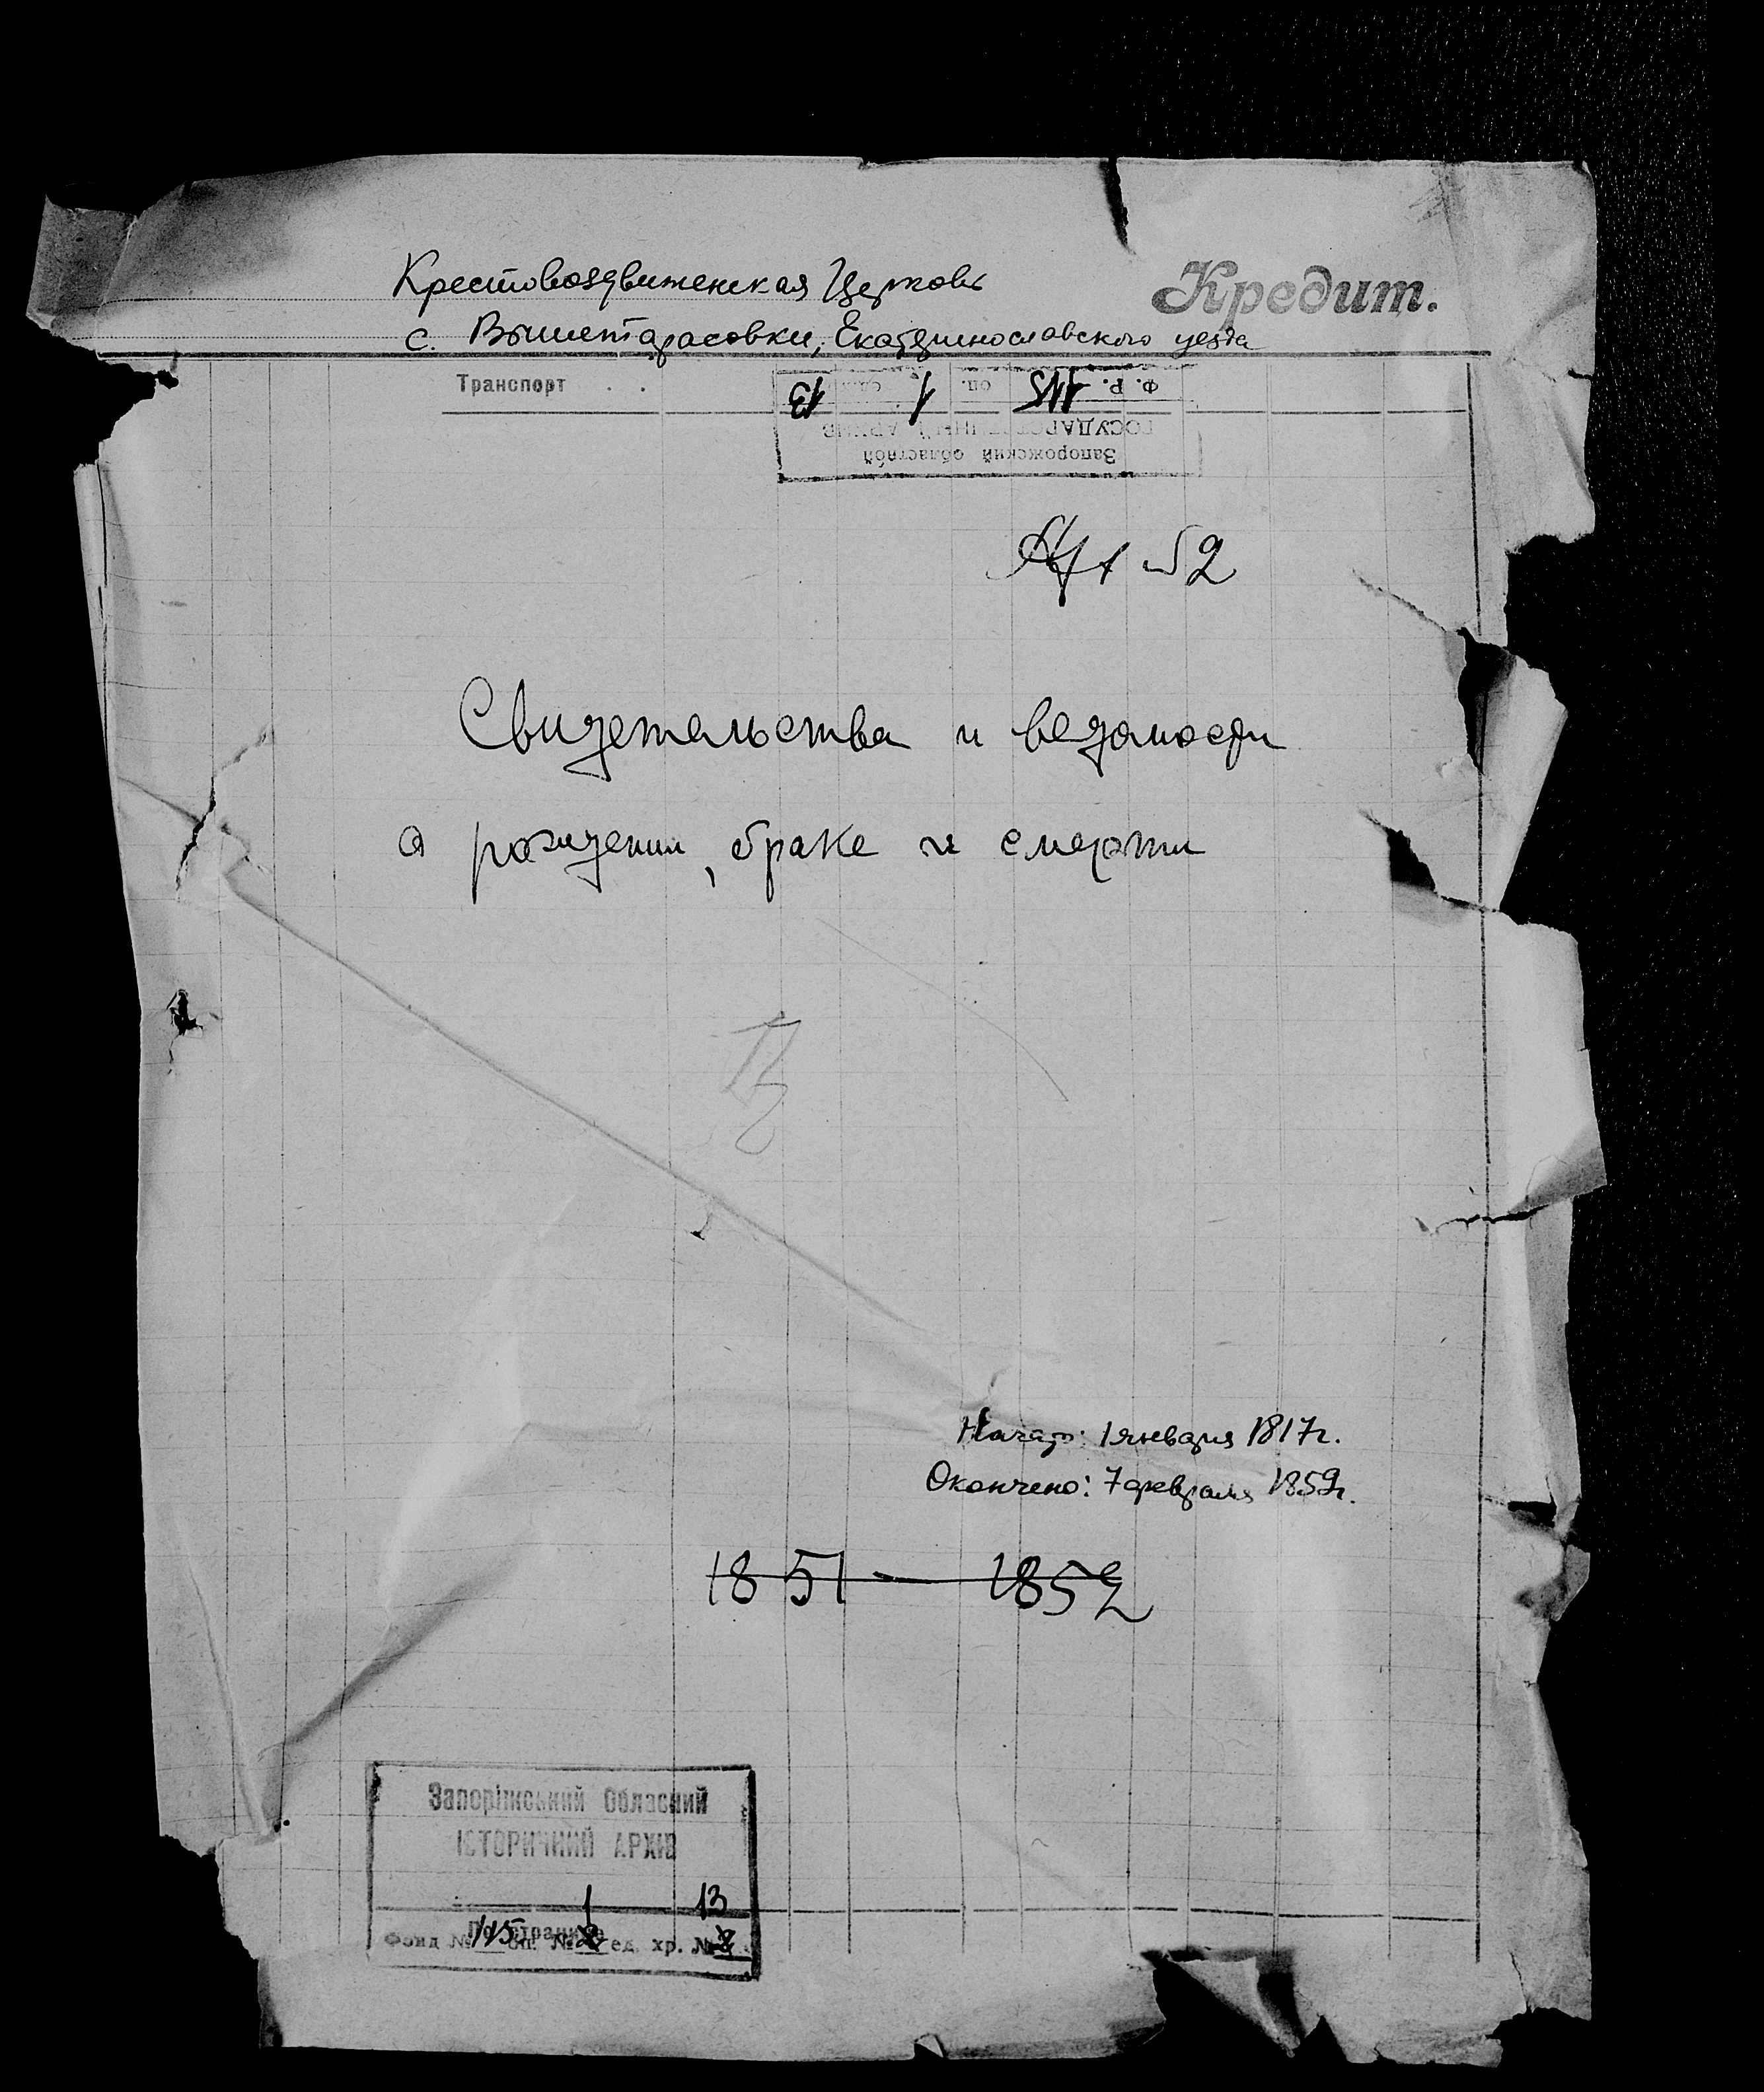 Крестовоздвиженская Церковь
Кредит.
с. Вышетарасовки, Екатеринославского уезда
Транспорт . .
Ф. Р. 115 оп. 1 13
ГОСУДАРСТВЕННЫЙ АРХИВ
Запорожский областной
№ 2
Свидетельства и ведомости
о рождении, браке и смерти
13
Начато: 1 января 1817г.
Окончено: 7 февраля 1852г.
1851 — 1852
Запоріжський Обласний
ІСТОРИЧНИЙ АРХІВ
1 13
Фонд № 115 оп. № ед. хр. №